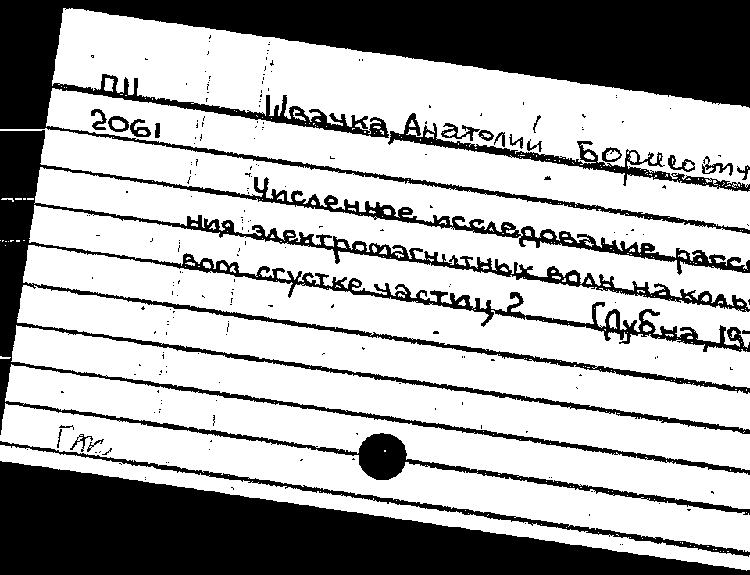 П11 Швачка, Анатолий Борисович
2061
Численное исследование рассе
ния электромагнитных волн на коль
вом сгустке частиц 2 [Дубна, 197
Гак